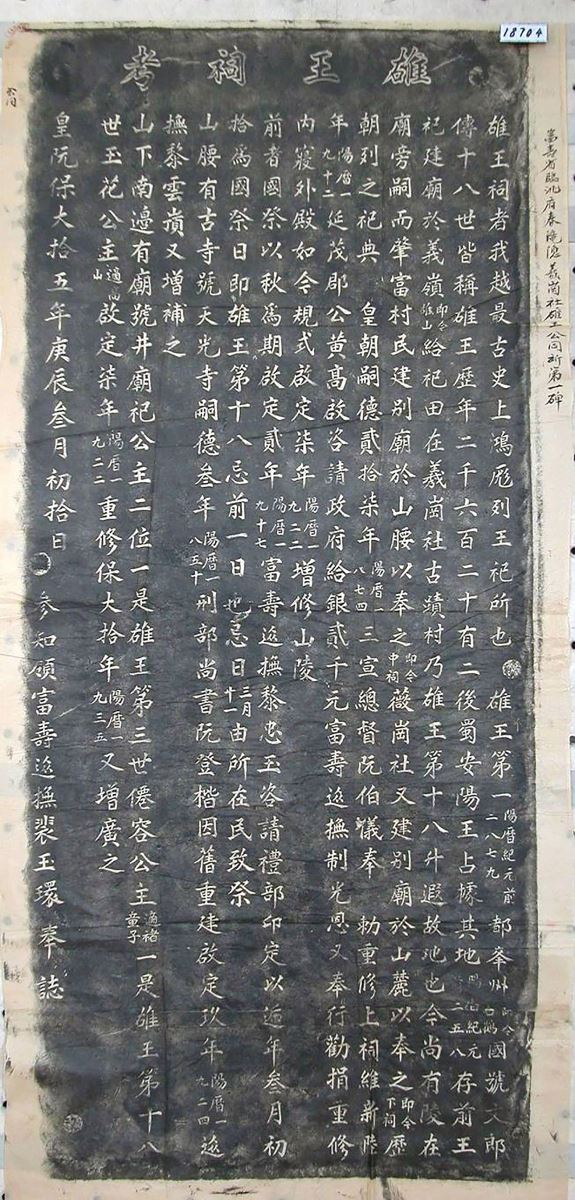 18704
富壽省臨洮府春隴滄義崗社雄王公同祈第一碑
雄王祠考
雄王祠者我越最古史上鴻厖列王祀所也雄王第一陽暦紀元前二八七九都峯州即今白鶴國號文郎
傳十八世皆稱雄王歷年二千六百二十有二後蜀安陽王占據其地陽暦紀元前二五八存前王
祀建廟於義嶺即今雄山給祀田在羲崗社古蹟村乃雄王第十八升遐故地也今尚有陵在
廟旁嗣而肇富村民建别廟於山腰以奉之即今中祠薇崗社又建别廟於山麓以奉之即今下祠歷
朝列之祀典皇朝嗣德貳拾柒年陽暦一八七四三宣總督阮伯儀奉勅重修上祠維新陸
年陽暦一九十二延茂郡公黄髙啟咨請政府給銀貳千元富壽巡撫制光恩又奉行勸捐重修
内寢外殿如今規式啟定柒年陽暦一九二二增修山陵
前者國祭以秋為期啟定貳年陽暦一九十七富壽巡撫黎忠玉咨請禮部卬定以逓年叁月初
拾為國祭日即雄王第十八忌前一日也忌日三月十一由所在民致祭
山腰有古寺號天光寺嗣德叁年陽暦一八五十刑部尚書阮登楷因舊重建啟定玖年陽暦一九二四巡
撫黎雲嶺又增補之
山下南邊有廟號井廟祀公主二位一是雄王第三世僊容公主適褚童子一是雄王第十八
世玉花公主適傘山啟定柒年陽暦一九二二重修保大拾年陽暦一九三五又增廣之
皇阮保大拾五年庚辰叁月初拾日參知領富壽巡撫裴玉環奉誌